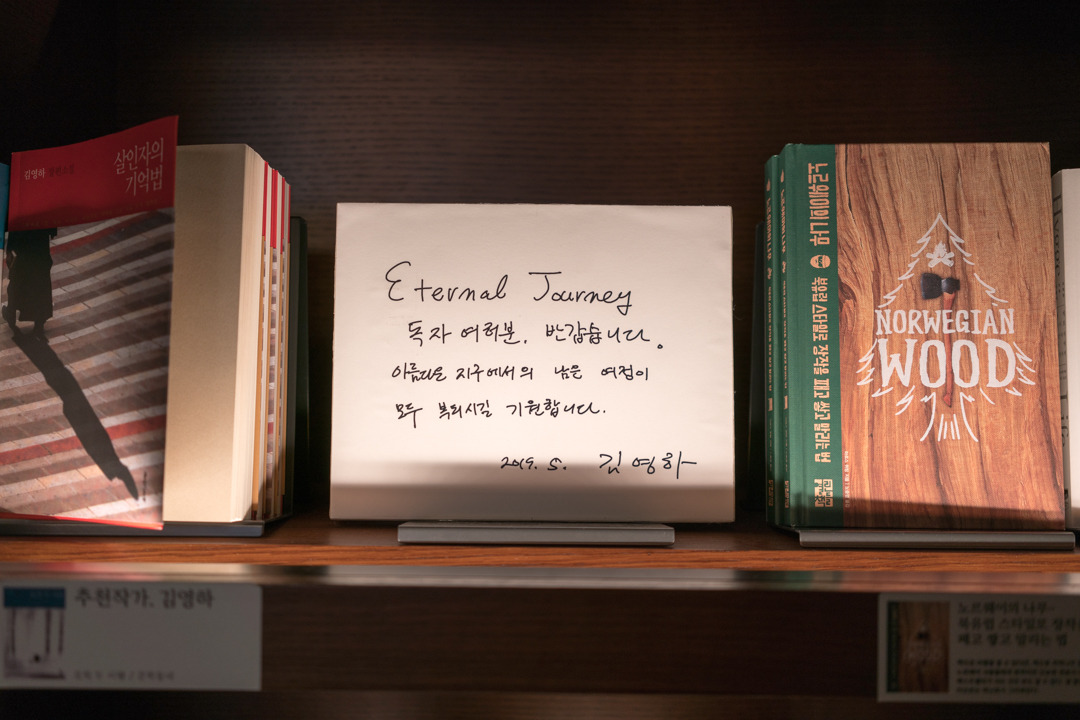 살인자의
기억법
김영하
Eternal Journey
독자 여러분, 반갑습니다.
아름다운 지구에서의 남은 여정이
모두 복되시길 기원합니다.
2019. 5. 김영하
노르웨이의 나무
북유럽 스타일로 장작을 패고 쌓고 말리는 법
NORWEGIAN
WOOD
추천작가. 김영하
노르웨이의 나무-
북유럽 스타일로 장작
패고 쌓고 말리는 법